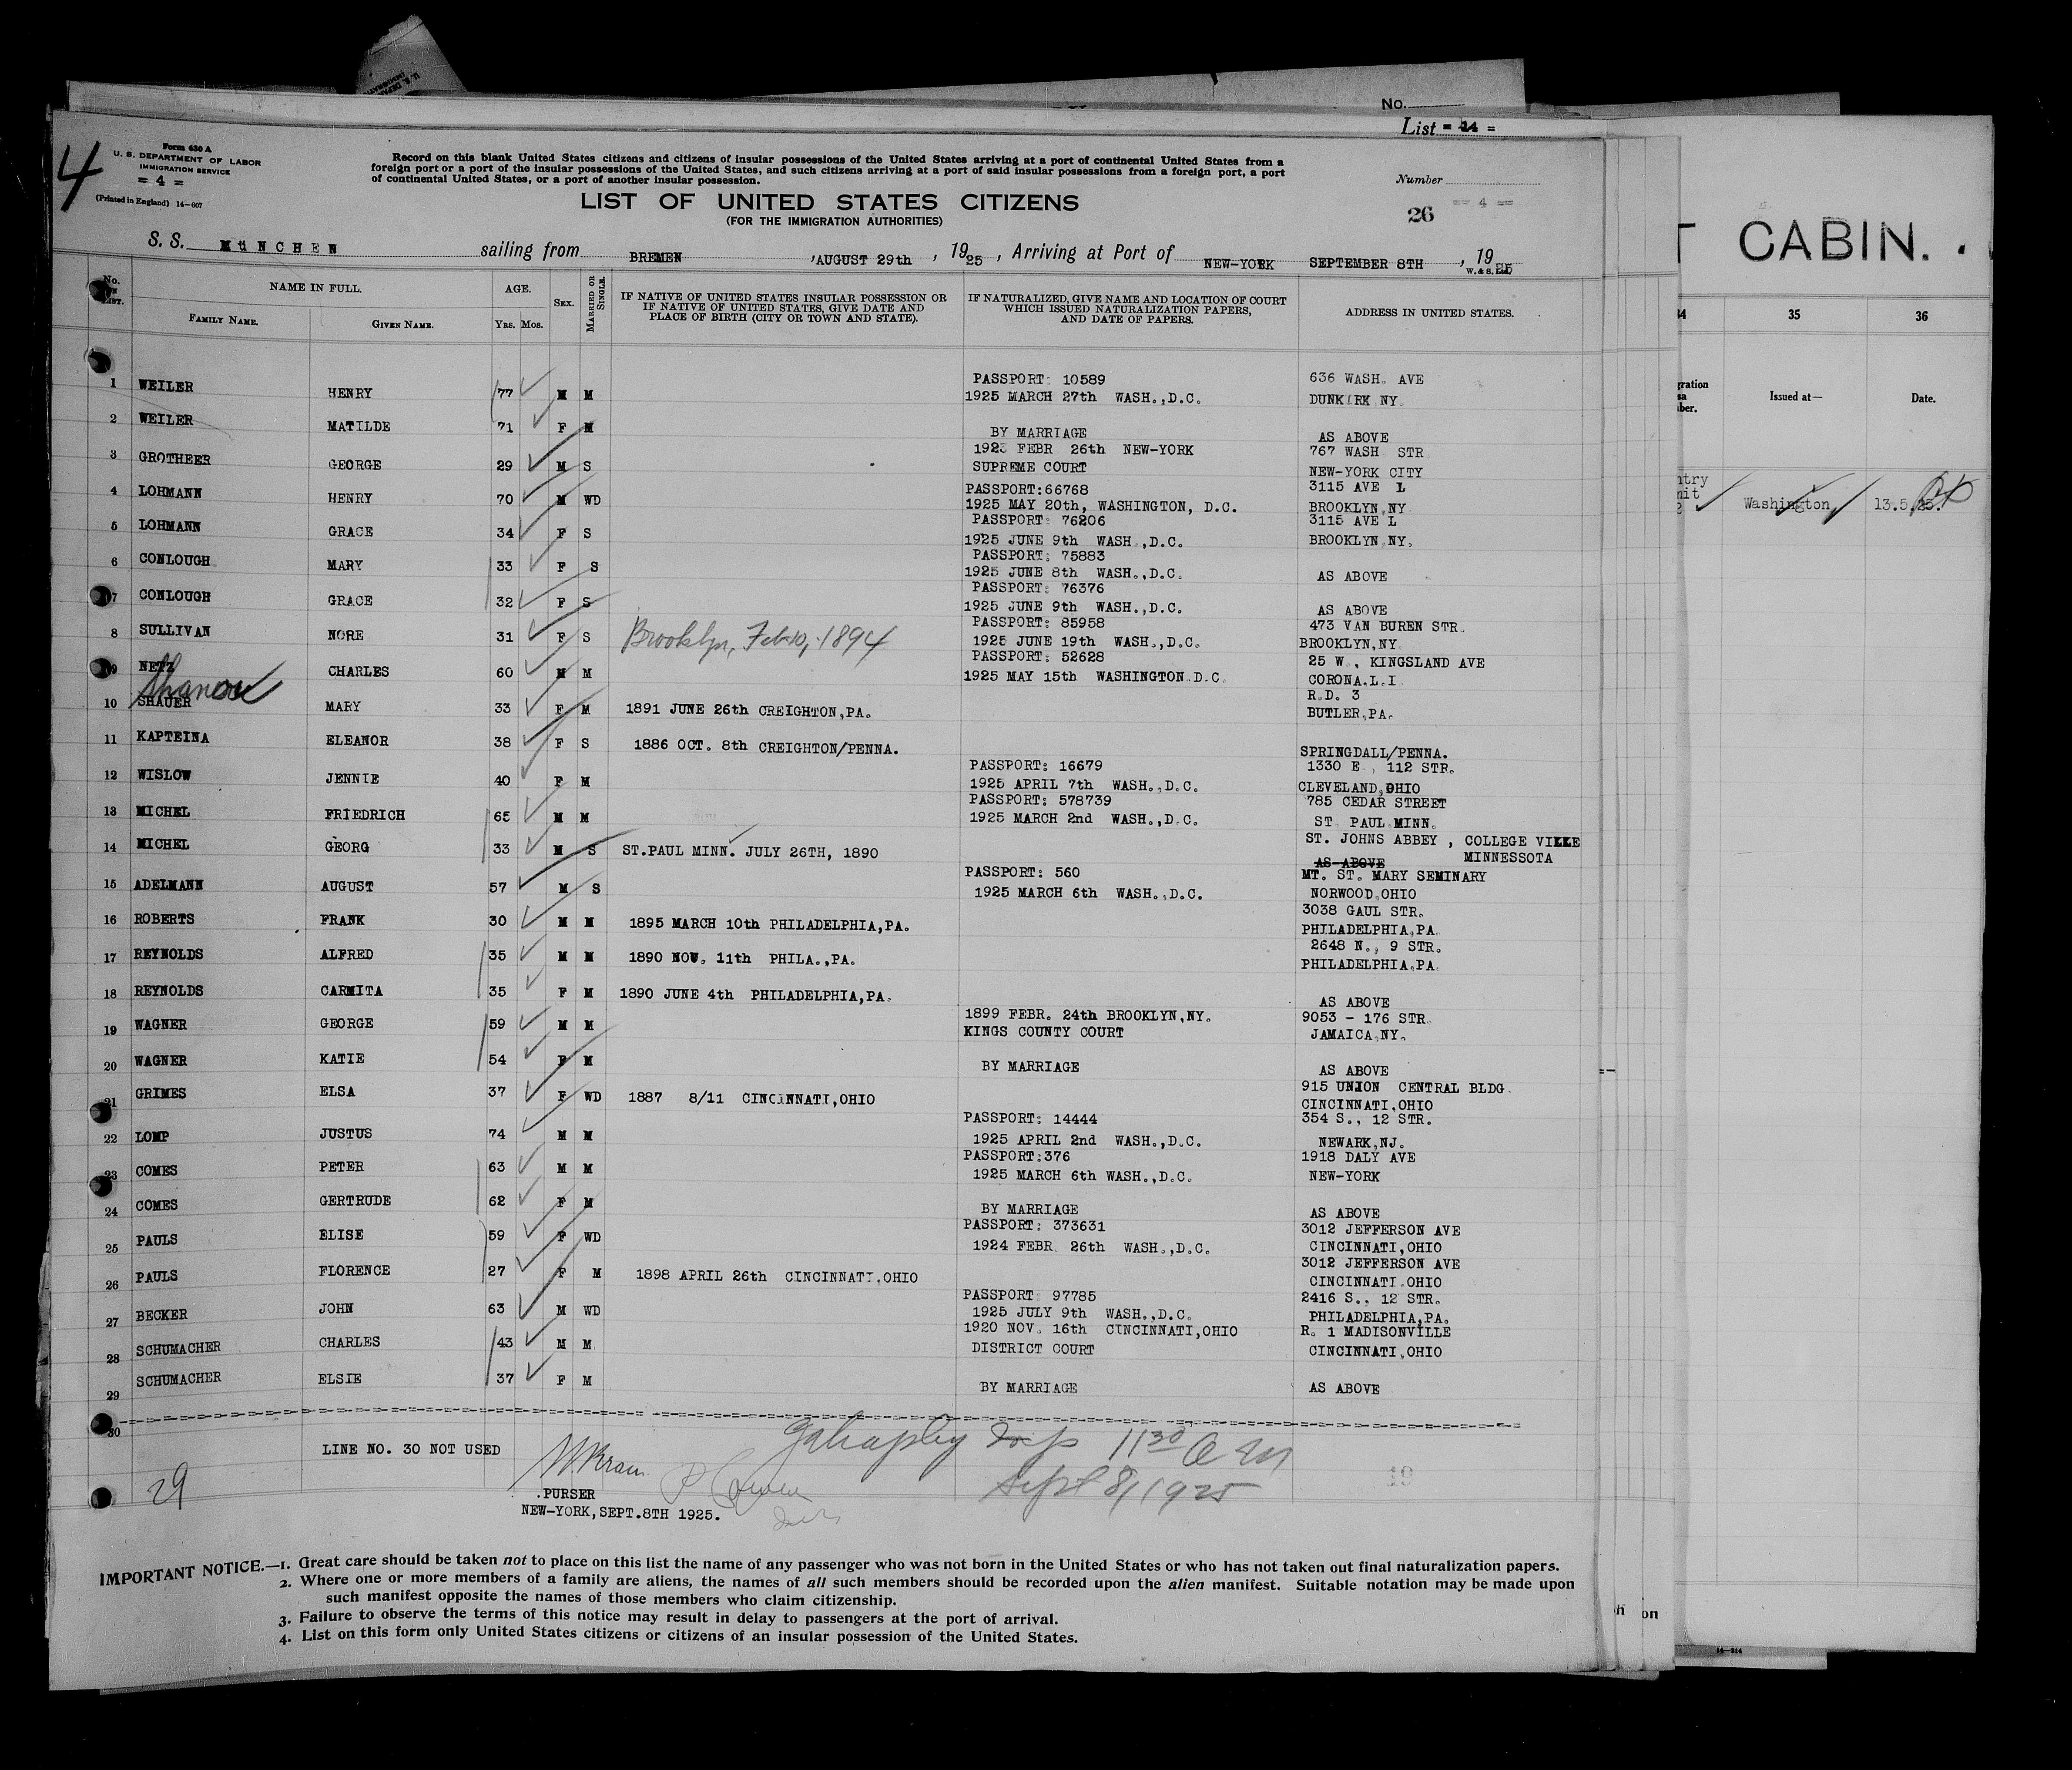 No.
List = 14 =
4
Form 630 A
U. S. DEPARTMENT OF LABOR
IMMIGRATION SERVICE
= 4 =
(Printed in England) 14-607
Record on this blank United States citizens and citizens of insular possessions of the United States arriving at a port of continental United States from a
foreign port or a port of the insular possessions of the United States, and such citizens arriving at a port of said insular possessions from a foreign port, a port
of continental United States, or a port of another insular possession.
Number
26 == 4 ==
LIST OF UNITED STATES CITIZENS
(FOR THE IMMIGRATION AUTHORITIES)
S. S. MüNCHEN sailing from BREMEN ,AUGUST 29th , 1925 , Arriving at Port of NEW-YORK SEPTEMBER 8TH , 1925
W. & S. Ltd
No. LIST. NAME IN FULL. AGE. SEX. MARRIED OR SINGLE. IF NATIVE OF UNITED STATES INSULAR POSSESSION OR IF NATIVE OF UNITED STATES, GIVE DATE AND PLACE OF BIRTH (CITY OR TOWN AND STATE). IF NATURALIZED, GIVE NAME AND LOCATION OF COURT WHICH ISSUED NATURALIZATION PAPERS, AND DATE OF PAPERS. ADDRESS IN UNITED STATES.
FAMILY NAME. GIVEN NAME. YRS. MOS.
1 WEILER HENRY 77 M M PASSPORT: 10589 636 WASH. AVE
1925 MARCH 27th WASH.,D.C. DUNKIRK NY.
2 WEILER MATILDE 71 F M BY MARRIAGE AS ABOVE
3 GROTHEER GEORGE 29 M S 1923 FEBR 26th NEW-YORK 767 WASH STR
SUPREME COURT NEW-YORK CITY
4 LOHMANN HENRY 70 M WD PASSPORT:66768 3115 AVE L
1925 MAY 20th, WASHINGTON, D.C. BROOKLYN,NY
5 LOHMANN GRACE 34 F S PASSPORT: 76206 3115 AVE L
1925 JUNE 9th WASH.,D.C. BROOKLYN NY.
6 CONLOUGH MARY 33 F S PASSPORT: 75883
1925 JUNE 8th WASH.,D.C. AS ABOVE
7 CONLOUGH GRACE 32 F S PASSPORT: 76376
1925 JUNE 9th WASH.,D.C. AS ABOVE
8 SULLIVAN NORE 31 F S Brooklyn, Feb 10, 1894 PASSPORT: 85958 473 VAN BUREN STR.
1925 JUNE 19th WASH.,D.C. BROOKLYN,NY
9 NETZ CHARLES 60 M M PASSPORT: 52628 25 W., KINGSLAND AVE
1925 MAY 15th WASHINGTON D.C. CORONA.L.I
10 SHAUER MARY 33 F M 1891 JUNE 26th CREIGHTON,PA. R.D. 3
BUTLER,PA.
11 KAPTEINA ELEANOR 38 F S 1886 OCT. 8th CREIGHTON/PENNA. SPRINGDALL/PENNA.
12 WISLOW JENNIE 40 F M PASSPORT: 16679 1330 E , 112 STR.
1925 APRIL 7th WASH.,D.C. CLEVELAND,OHIO
13 MICHEL FRIEDRICH 65 M M PASSPORT: 578739 785 CEDAR STREET
1925 MARCH 2nd WASH.,D.C. ST PAUL MINN.
14 MICHEL GEORG 33 M S ST.PAUL MINN. JULY 26TH, 1890 ST. JOHNS ABBEY , COLLEGE VILLE
AS ABOVE MINNESSOTA
15 ADELMANN AUGUST 57 M S PASSPORT: 560 MT. ST. MARY SEMINARY
1925 MARCH 6th WASH.,D.C. NORWOOD,OHIO
16 ROBERTS FRANK 30 M M 1895 MARCH 10th PHILADELPHIA,PA. 3038 GAUL STR.
PHILADELPHIA,PA
17 REYNOLDS ALFRED 35 M M 1890 NOV. 11th PHILA.,PA. 2648 N., 9 STR.
PHILADELPHIA,PA
18 REYNOLDS CARMITA 35 F M 1890 JUNE 4th PHILADELPHIA,PA. AS ABOVE
19 WAGNER GEORGE 59 M M 1899 FEBR. 24th BROOKLYN,NY. 9053 - 176 STR.
KINGS COUNTY COURT JAMAICA,NY.
20 WAGNER KATIE 54 F M BY MARRIAGE AS ABOVE
21 GRIMES ELSA 37 F WD 1887 8/11 CINCINNATI,OHIO 915 UNION CENTRAL BLDG.
CINCINNATI,OHIO
22 LOMP JUSTUS 74 M M PASSPORT: 14444 354 S., 12 STR.
1925 APRIL 2nd WASH.,D.C. NEWARK,NJ.
23 COMES PETER 63 M M PASSPORT:376 1918 DALY AVE
1925 MARCH 6th WASH.,D.C. NEW-YORK
24 COMES GERTRUDE 62 F M BY MARRIAGE AS ABOVE
25 PAULS ELISE 59 F WD PASSPORT: 373631 3012 JEFFERSON AVE
1924 FEBR. 26th WASH.,D.C. CINCINNATI,OHIO
26 PAULS FLORENCE 27 F M 1898 APRIL 26th CINCINNATI,OHIO 3012 JEFFERSON AVE
CINCINNATI,OHIO
27 BECKER JOHN 63 M WD PASSPORT 97785 2416 S., 12 STR.
1925 JULY 9th WASH.,D.C. PHILADELPHIA,PA.
28 SCHUMACHER CHARLES 43 M M 1920 NOV. 16th CINCINNATI,OHIO R. 1 MADISONVILLE
DISTRICT COURT CINCINNATI,OHIO
29 SCHUMACHER ELSIE 37 F M BY MARRIAGE AS ABOVE
30
LINE NO. 30 NOT USED 11 30 A M
29 Sept 8/1925 19
.PURSER
NEW-YORK,SEPT.8TH 1925.
IMPORTANT NOTICE.—1. Great care should be taken not to place on this list the name of any passenger who was not born in the United States or who has not taken out final naturalization papers.
2. Where one or more members of a family are aliens, the names of all such members should be recorded upon the alien manifest. Suitable notation may be made upon
such manifest opposite the names of those members who claim citizenship.
3. Failure to observe the terms of this notice may result in delay to passengers at the port of arrival.
4. List on this form only United States citizens or citizens of an insular possession of the United States.
CABIN.
34 35 36
Issued at— Date.
Washington 13.5.25.
on
14-214